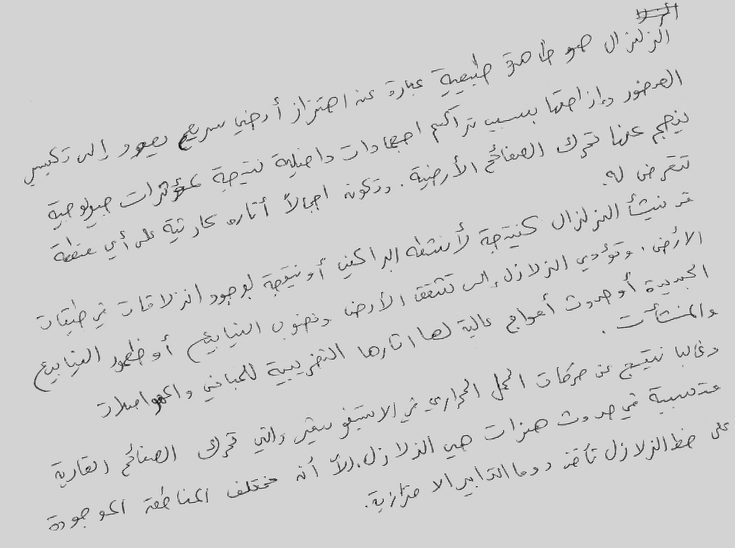 الزلزال هو ظاهرة طبيعية عبارة عن اهتزاز أرضي سريع يعود إلى تكسير
الصخور وإزاحتها بسبب تراكم اجهادات داخلية نتيجة لمؤثرات جيولوجية
ينجم عنها تحرك الصفائح الأرضية. وتكون اجمالاً أثاره كارثية على أي منطقة
تتعرض له.
قد ينشأ الزلزال كنتيجة لأنشطة البراكين أو نتيجة لوجود انزلاقات في طبقات
الأرض. وتؤدي الزلازل إلى تشقق الأرض ونضوب الينابيع أو ظهور الينابيع
الجديدة أو حدوث أمواج عالية لها اثارها التخريبية للمباني والمواصلات
والمنشآت.
وغالبا ينتج عن حركات الحمل الحراري في الاستينوسفير والتي تحرك الصفائح القارية
متسببة في حدوث هزات هي الزلازل. إلا أنه مختلف المناطق الموجودة
على خط الزلازل تأخذ دوما التدابير الاحترازية.